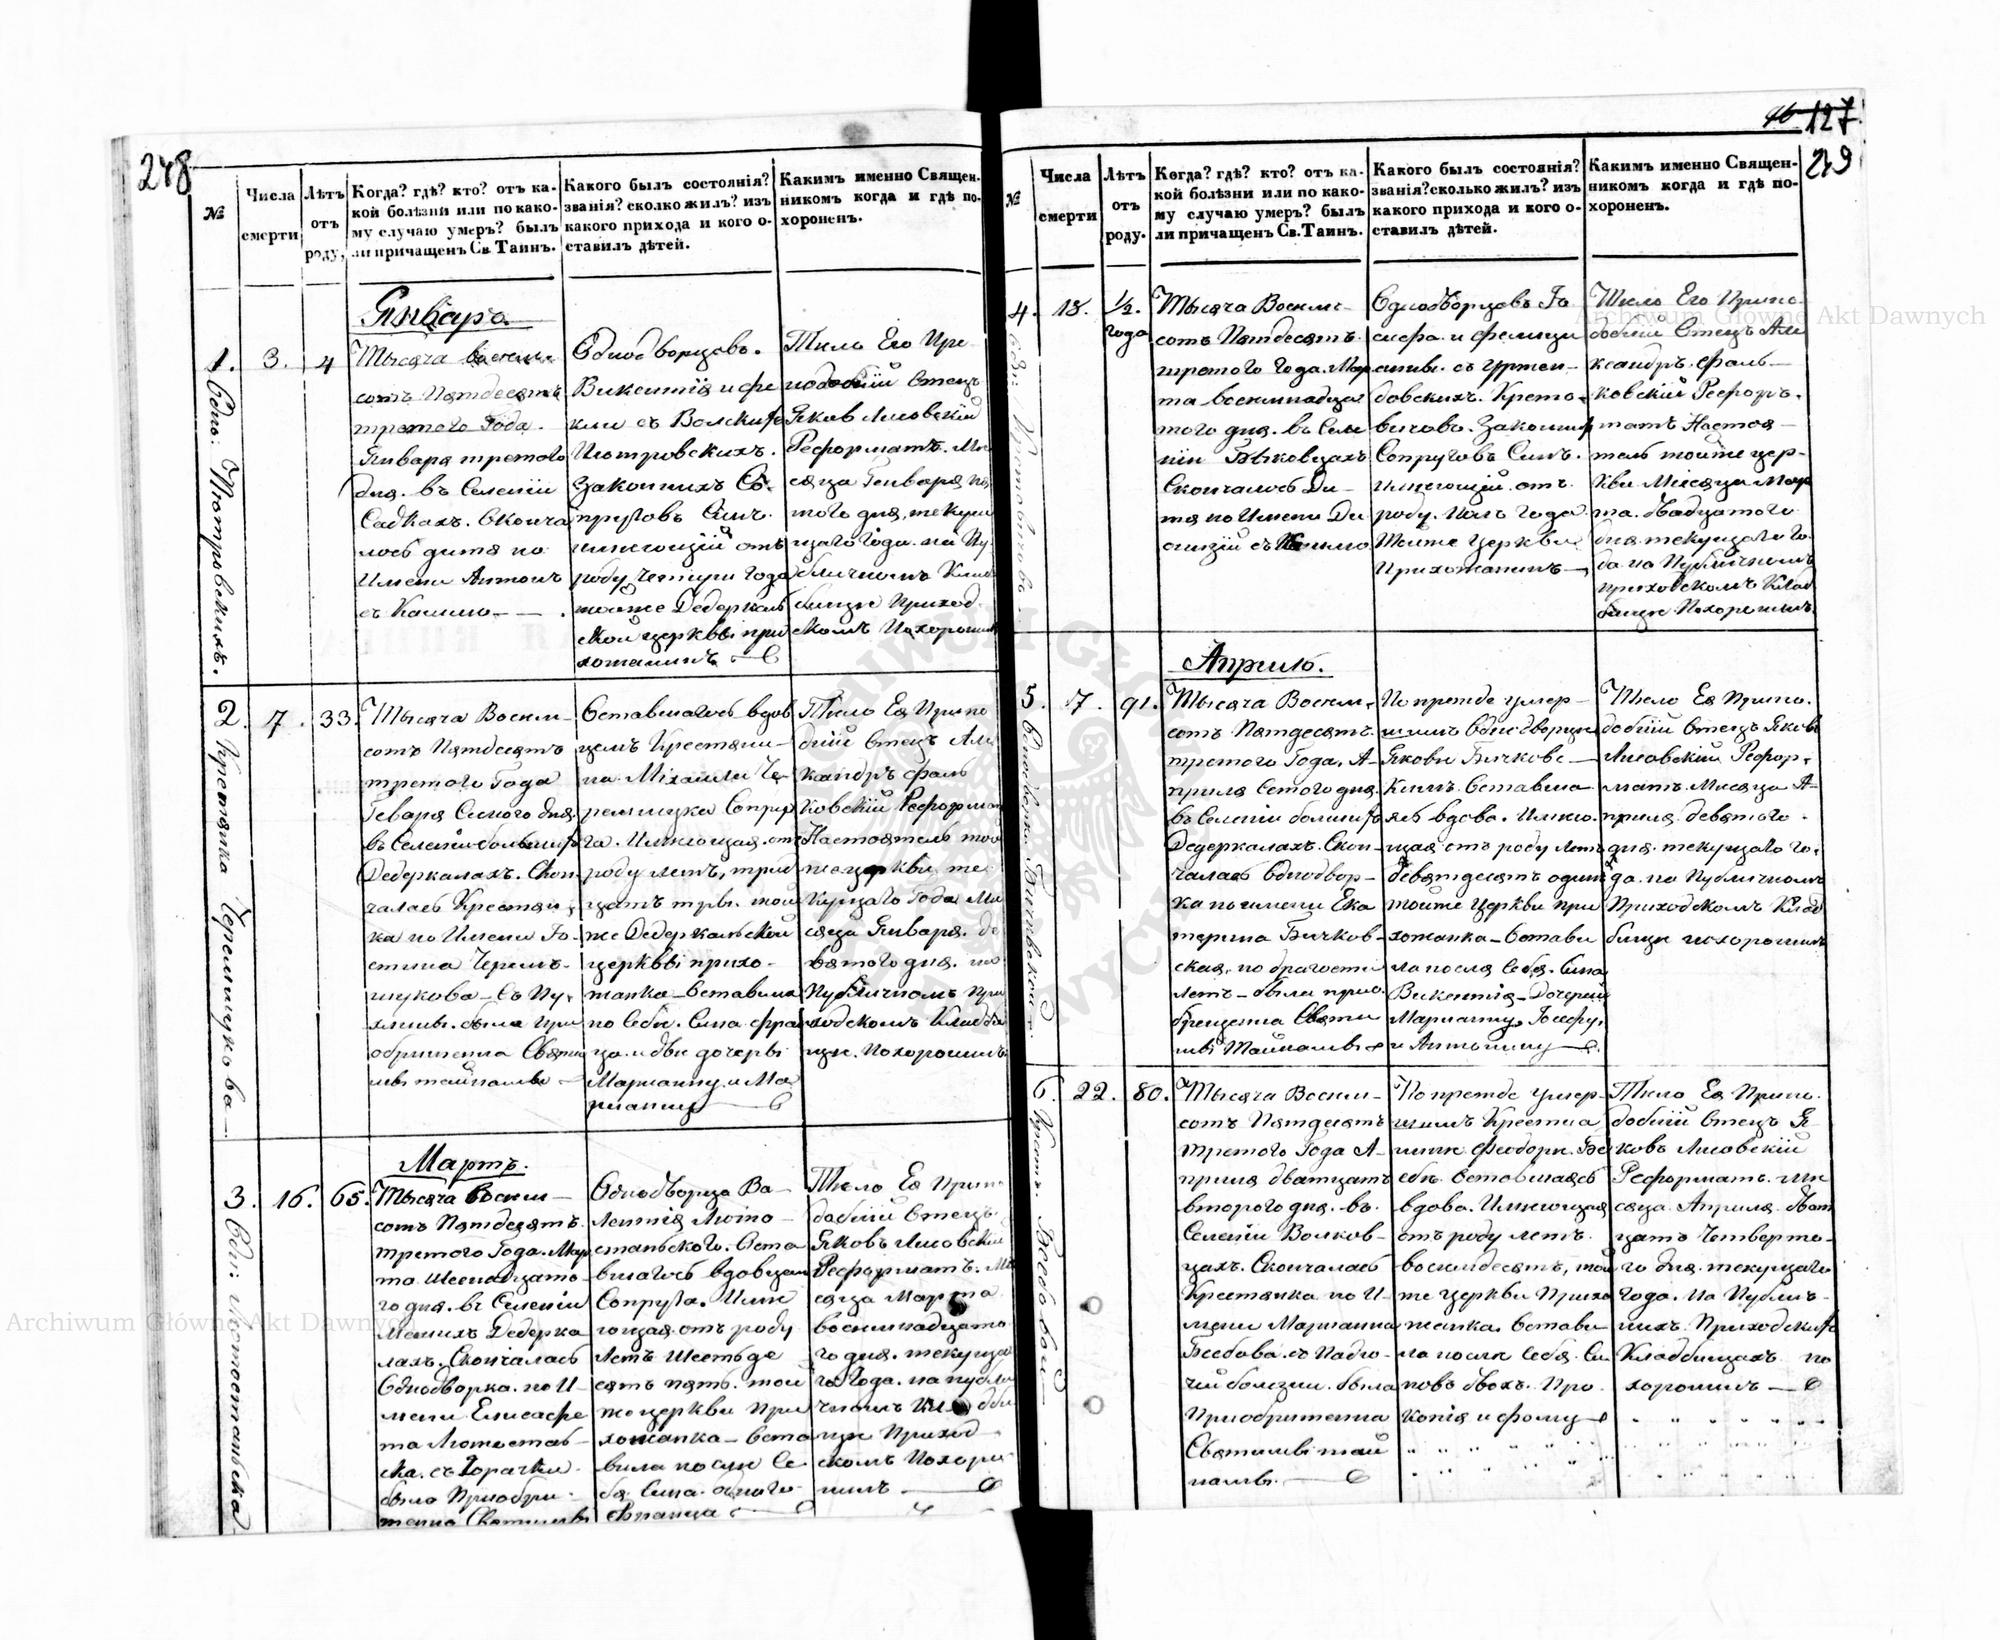 248
№
Числа
смерти
Лѣтъ
отъ
роду.
Когда? гдѣ? кто? отъ ка-
кой болѣзни или по како-
му случаю умеръ? былъ
ли причащенъ Св. Таинъ.
Какого былъ состоянія?
званія? сколко жилъ? изъ
какого прихода и кого о-
ставилъ дѣтей.
Какимъ именно Священ-
никомъ когда и гдѣ по-
хороненъ.
Январь
1. 3. 4
Тысяча восемь-
сотъ Пятдесятъ
третого Года.
Января третого
дня. въ Селеніи
Садкахъ. Сконча
лось дитя по
Имени Антонъ
съ Кашлю
Однодворцовъ.
Викентія и Фе
Піотровскихъ.
Законныхъ Со-
пруговъ Сынъ.
имеющій отъ
роду четыри Года
тойже Дедеркаль
ской церкви при
хожанинъ
Тело Его Пре
подобній Отецъ
Яковъ Лисовскій
Реформатъ. Ме
сяца Генваря пя
того дня, текущ
щаго Года. на Пу
бличномъ Клад
бищи Приход
скомъ Похоронилъ
2. 7. 33.
Тысяча Восем-
сотъ Пятдесятъ
третого Года
въ Селеніи больших
Дедеркалахъ. Скон-
чалась Крестян-
ка по Имени Ю-
стина Черем-
шукова
Оставшагось вдов
цемъ Крестяни-
на Міхаила Че-
ремшука Супру
га. Имеющая. от
роду летъ, трид
цать три. той
же Дедеркальской
церкви прихо-
жанка Оставила
по Себе. Сына Фран
ца. и две дочери
Марианну и Ма
рианну
Тело Ея Препо
дбній Отецъ Але
ксандръ Фаль
ковскій Реформат
Настоятель той
же церкви, те
кущаго Года Ме
сяца Января. де
вятого дня. на
Публичномъ При
ходскомъ Кладби
щи. Похоронилъ
Мартъ.
3. 16. 65.
Тысяча восем-
сотъ Пятдесятъ
третого Года. Мар
та Шеснадцато-
го дня. въ Селеніи
Малихъ Дедерка
лахъ. Скончалась
Однодворка. по И-
мени Елисаве
та
съ Горачки
было Приобри-
Однодворца Ва-
лентія
Оста
вшагось вдовцем
Супруга. Име
ющая. отъ роду
Летъ Шестьде
сятъ пять. той
же церкви При
хожанка Оста
вила после Се-
бя Сына одного
Франца
Тело Ея Препо
добній Отецъ
Яковъ Лисовскій
Реформатъ. Ме
сяца Марта
восемнадцато
го дня. текуща
го Года. на публи
чномъ Кладби
щи Приход
скомъ Похоро
нилъ
127
249
№
Числа
смерти
Лѣтъ
отъ
роду.
Когда? гдѣ? кто? отъ ка-
кой болѣзни или по како-
му случаю умеръ? былъ
ли причащенъ Св. Таинъ.
Какого былъ состоянія?
званія? сколько жилъ? изъ
какого прихода и кого о-
ставилъ дѣтей.
Какимъ именно Священ-
никомъ когда и гдѣ по-
хороненъ.
4. 18. ½.
года
Тысяча Восем-
сотъ Пятдесятъ
третого Года. Мар
та восемнадца
того дня. въ Селе
ніи Биковцахъ
Скончалось Ди-
тя по Имени
Однодворцовъ Іо
сифа и Фелици
Законных
Супруговъ Синъ.
имеющій отъ
роду. полъ Года
Тойже Церкви
Прихожанинъ
Тело Его Препо
добній Отецъ Але
ксандръ Фаль-
ковскій Рефор-
матъ Настоя-
тель тойже цер-
кви Месяца Мар
та. двадцатого
дня текущаго го
да на Публичномъ
приходскомъ Клад
бищи Похоронилъ
Апрель.
5. 7. 91.
Тысяча Восем-
сотъ Пятдесятъ
третого Года, А-
преля Семого дня
въ Селеніи болших
Дедеркалахъ. Скон-
чалась Однодвор-
ка по имени Ека
терина Бичков-
ская, по драгости
летъ была прио
брещенна Святи
ми Тайнами
По прежде умер-
шимъ Однодворце
Якови Бичковс-
кимъ Оставша
ясь вдова. Имею-
щая отъ роду летъ
девятдесятъ один
тойже Церкви при
хожанка Остави
ла после Себя. Сина
Викентія Дочерей
Марианну, Іосефу,
и Антонину
Тело Ея Препо-
добній Отецъ Яковъ
Лисовскій Рефор-
матъ Месяца А-
преля девятого
дня. текущаго го-
да. на Публичномъ
Приходскомъ Клад
бищи похоронилъ
6. 22. 80.
Тысяча Восем-
сотъ Пятдесятъ
Третого Года А-
преля дватцать
второго дня. въ
Селеніи Волков-
цахъ. Скончалась
Крестянка по И-
мени Марианна
Беседова
болезни. была
Приобрещенна
Святими тай
нами.
По прежде умер-
шимъ Крестиа
нини Феодори. Бе
Оставшаясь
вдова. Имеющая
отъ роду летъ
восемдесятъ, той
же церкви Прихо
жанка. Остави
ла после Себя. Си
новъ двохъ. Про-
копія и Фому
Тело Ея Препо-
добній Отецъ Я-
ковъ Лисовскій
Реформатъ. Ме
сяца Апреля два
цать Четверто-
го дня. текущаго
Года. на Публич-
нихъ Приходских
Кладбищахъ по
хоронилъ
Archiwum Główne Akt Dawnych
Archiwum Główne Akt Dawnych